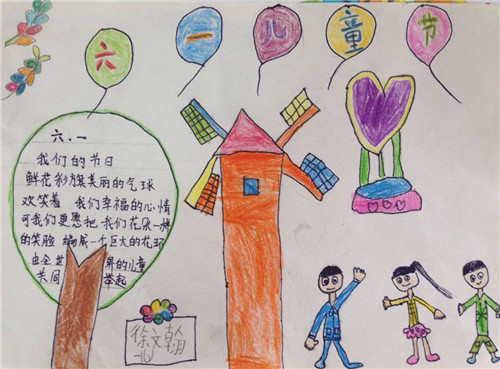 六一儿童节
六.一
我们的节日
鲜花彩旗美丽的气球
欢笑着 我们幸福的心情
可我们更愿把我们花朵一样
的笑脸 编成一个巨大的花环
由全世 界的儿童
共同 举起
徐文翰
一(1)